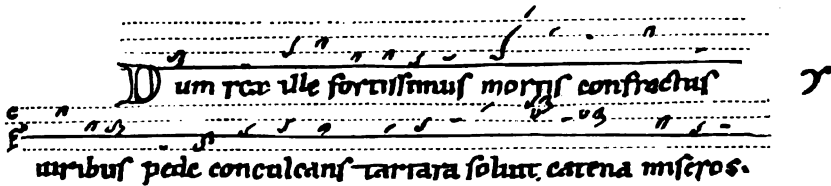 Dum rex ille fortissimus mortis confractus
c
F
uiribus pede conculcans tartara soluit catena miseros.